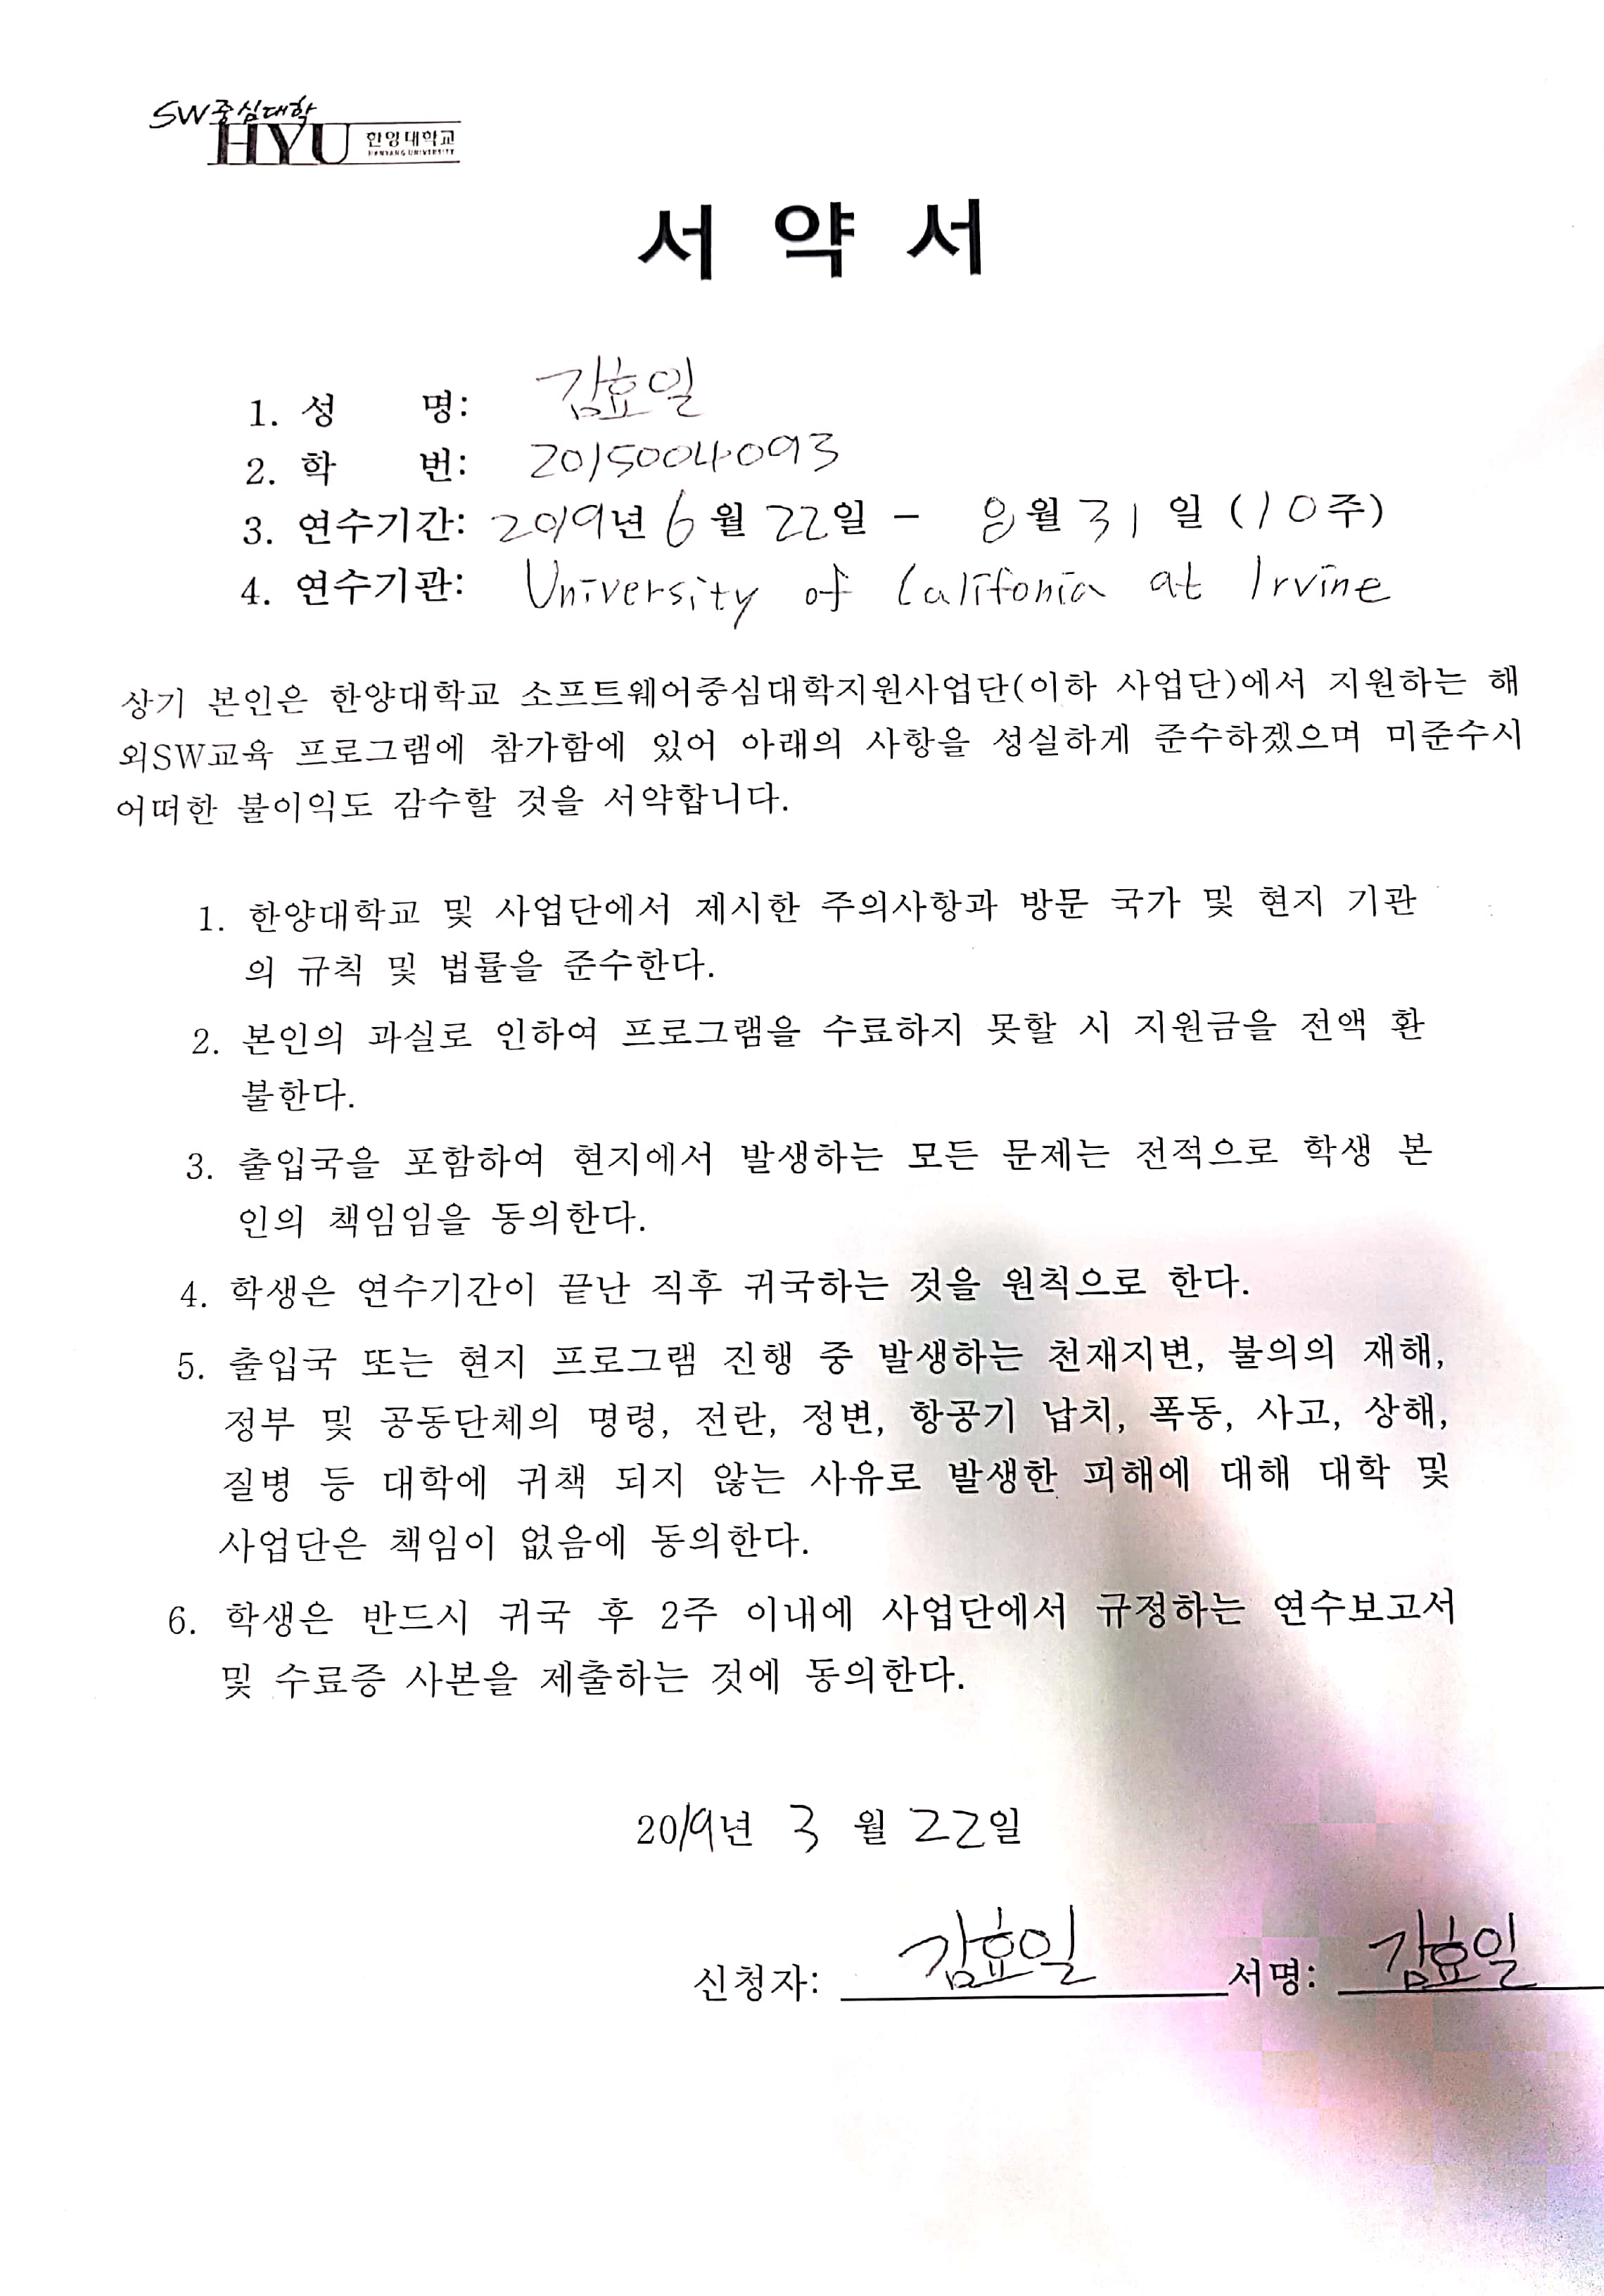 SW중심대학
HYU 한양대학교
HANYANG UNIVERSITY
서 약 서
1. 성 명: 김효일
2. 학 번: 2015004093
3. 연수기간: 2019년 6월 22일 - 8월 31일 (10주)
4. 연수기관: University of Califonia at Irvine
상기 본인은 한양대학교 소프트웨어중심대학지원사업단(이하 사업단)에서 지원하는 해
외SW교육 프로그램에 참가함에 있어 아래의 사항을 성실하게 준수하겠으며 미준수시
어떠한 불이익도 감수할 것을 서약합니다.
1. 한양대학교 및 사업단에서 제시한 주의사항과 방문 국가 및 현지 기관
의 규칙 및 법률을 준수한다.
2. 본인의 과실로 인하여 프로그램을 수료하지 못할 시 지원금을 전액 환
불한다.
3. 출입국을 포함하여 현지에서 발생하는 모든 문제는 전적으로 학생 본
인의 책임임을 동의한다.
4. 학생은 연수기간이 끝난 직후 귀국하는 것을 원칙으로 한다.
5. 출입국 또는 현지 프로그램 진행 중 발생하는 천재지변, 불의의 재해,
정부 및 공동단체의 명령, 전란, 정변, 항공기 납치, 폭동, 사고, 상해,
질병 등 대학에 귀책 되지 않는 사유로 발생한 피해에 대해 대학 및
사업단은 책임이 없음에 동의한다.
6. 학생은 반드시 귀국 후 2주 이내에 사업단에서 규정하는 연수보고서
및 수료증 사본을 제출하는 것에 동의한다.
2019년 3 월 22일
신청자: 김효일 서명: 김효일